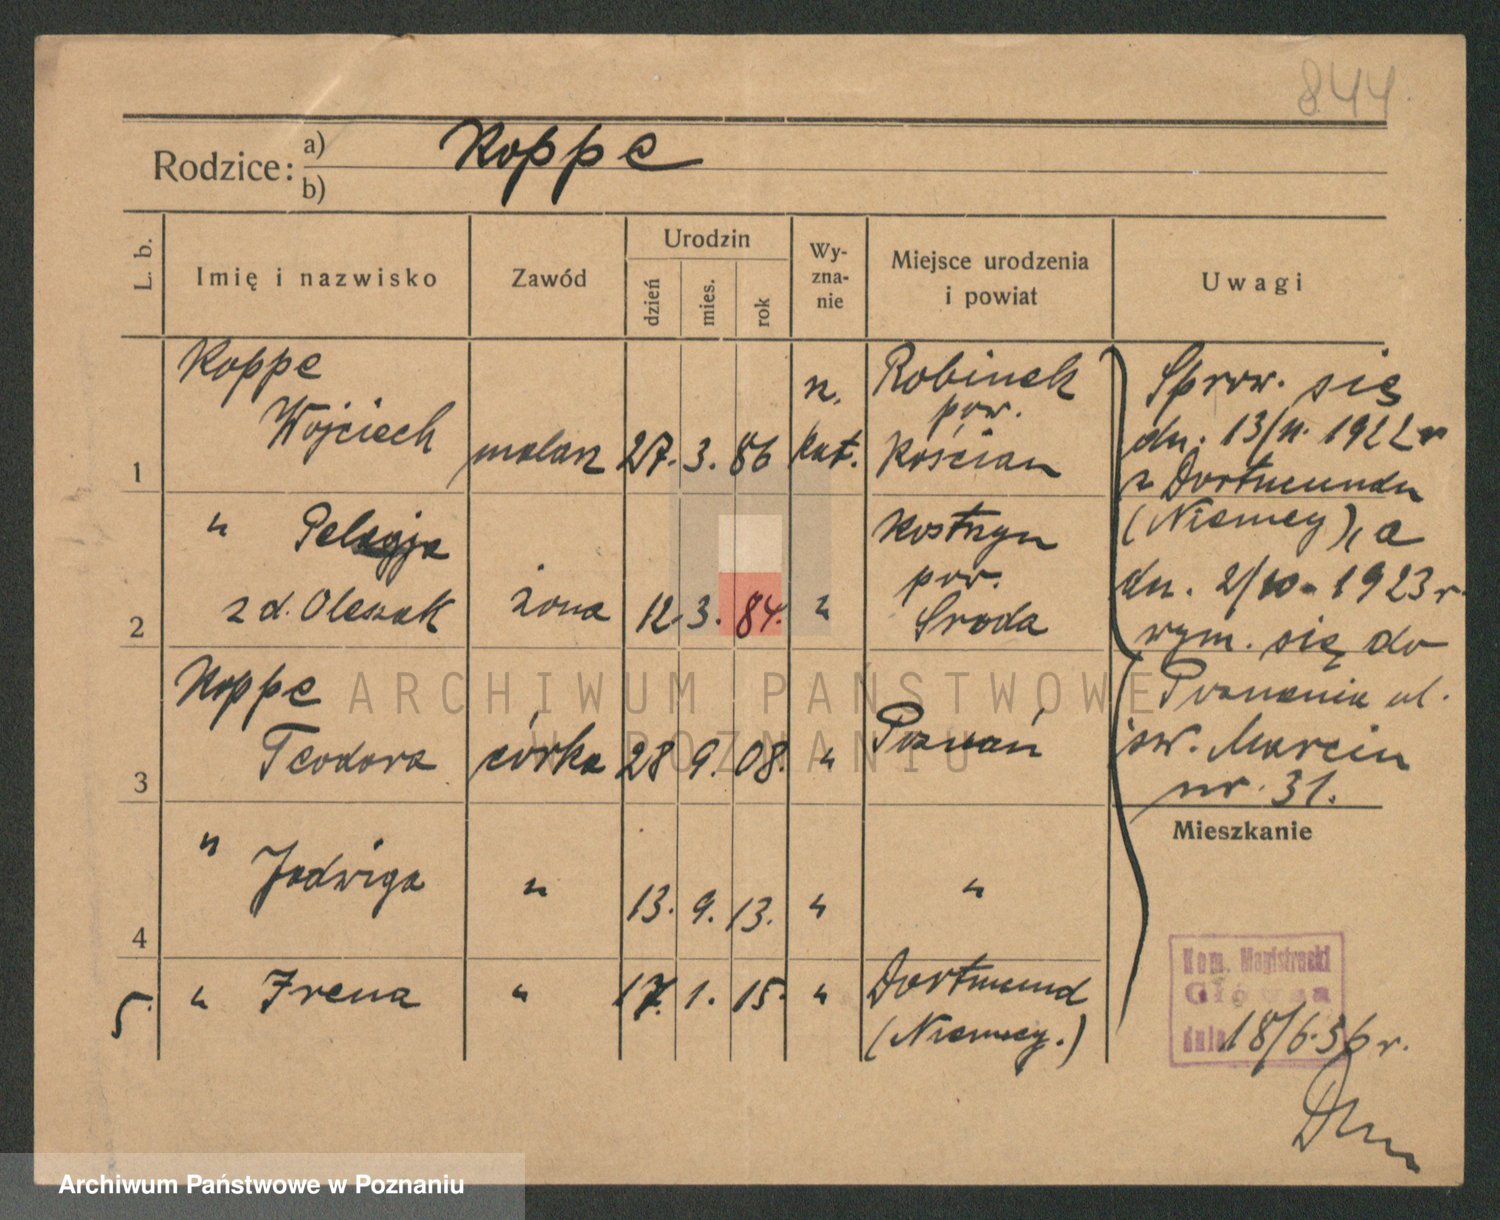 844
Rodzice: a) Koppe
b)
L. b. Imię i nazwisko Zawód Urodzin dzień mies. rok Wy-zna-nie Miejsce urodzenia i powiat Uwagi
1 Koppe Wojciech malarz 27. 3. 86 rz. kat. Robinek pow. Kościan
2 " Pelagja z d. Oleszak żona 12. 3. 84. " Kostrzyn pow. Środa
3 Koppe Teodora córka 28 9. 08. " Poznań
4 " Jadwiga " 13. 9. 13. " "
5. " Irena " 17. 1. 15. " Dortmund (Niemcy.)
Sprow. się
dn. 13/11. 1922 r
z Dortmundu
(Niemcy), a
dn. 2/10. 1923 r.
wym. się do
Poznania ul.
św. Marcin
nr. 31.
Mieszkanie
Kom. Magistracki
Główna
dnia 18/6.36 r.
ARCHIWUM PAŃSTWOWE
W POZNANIU
Archiwum Państwowe w Poznaniu